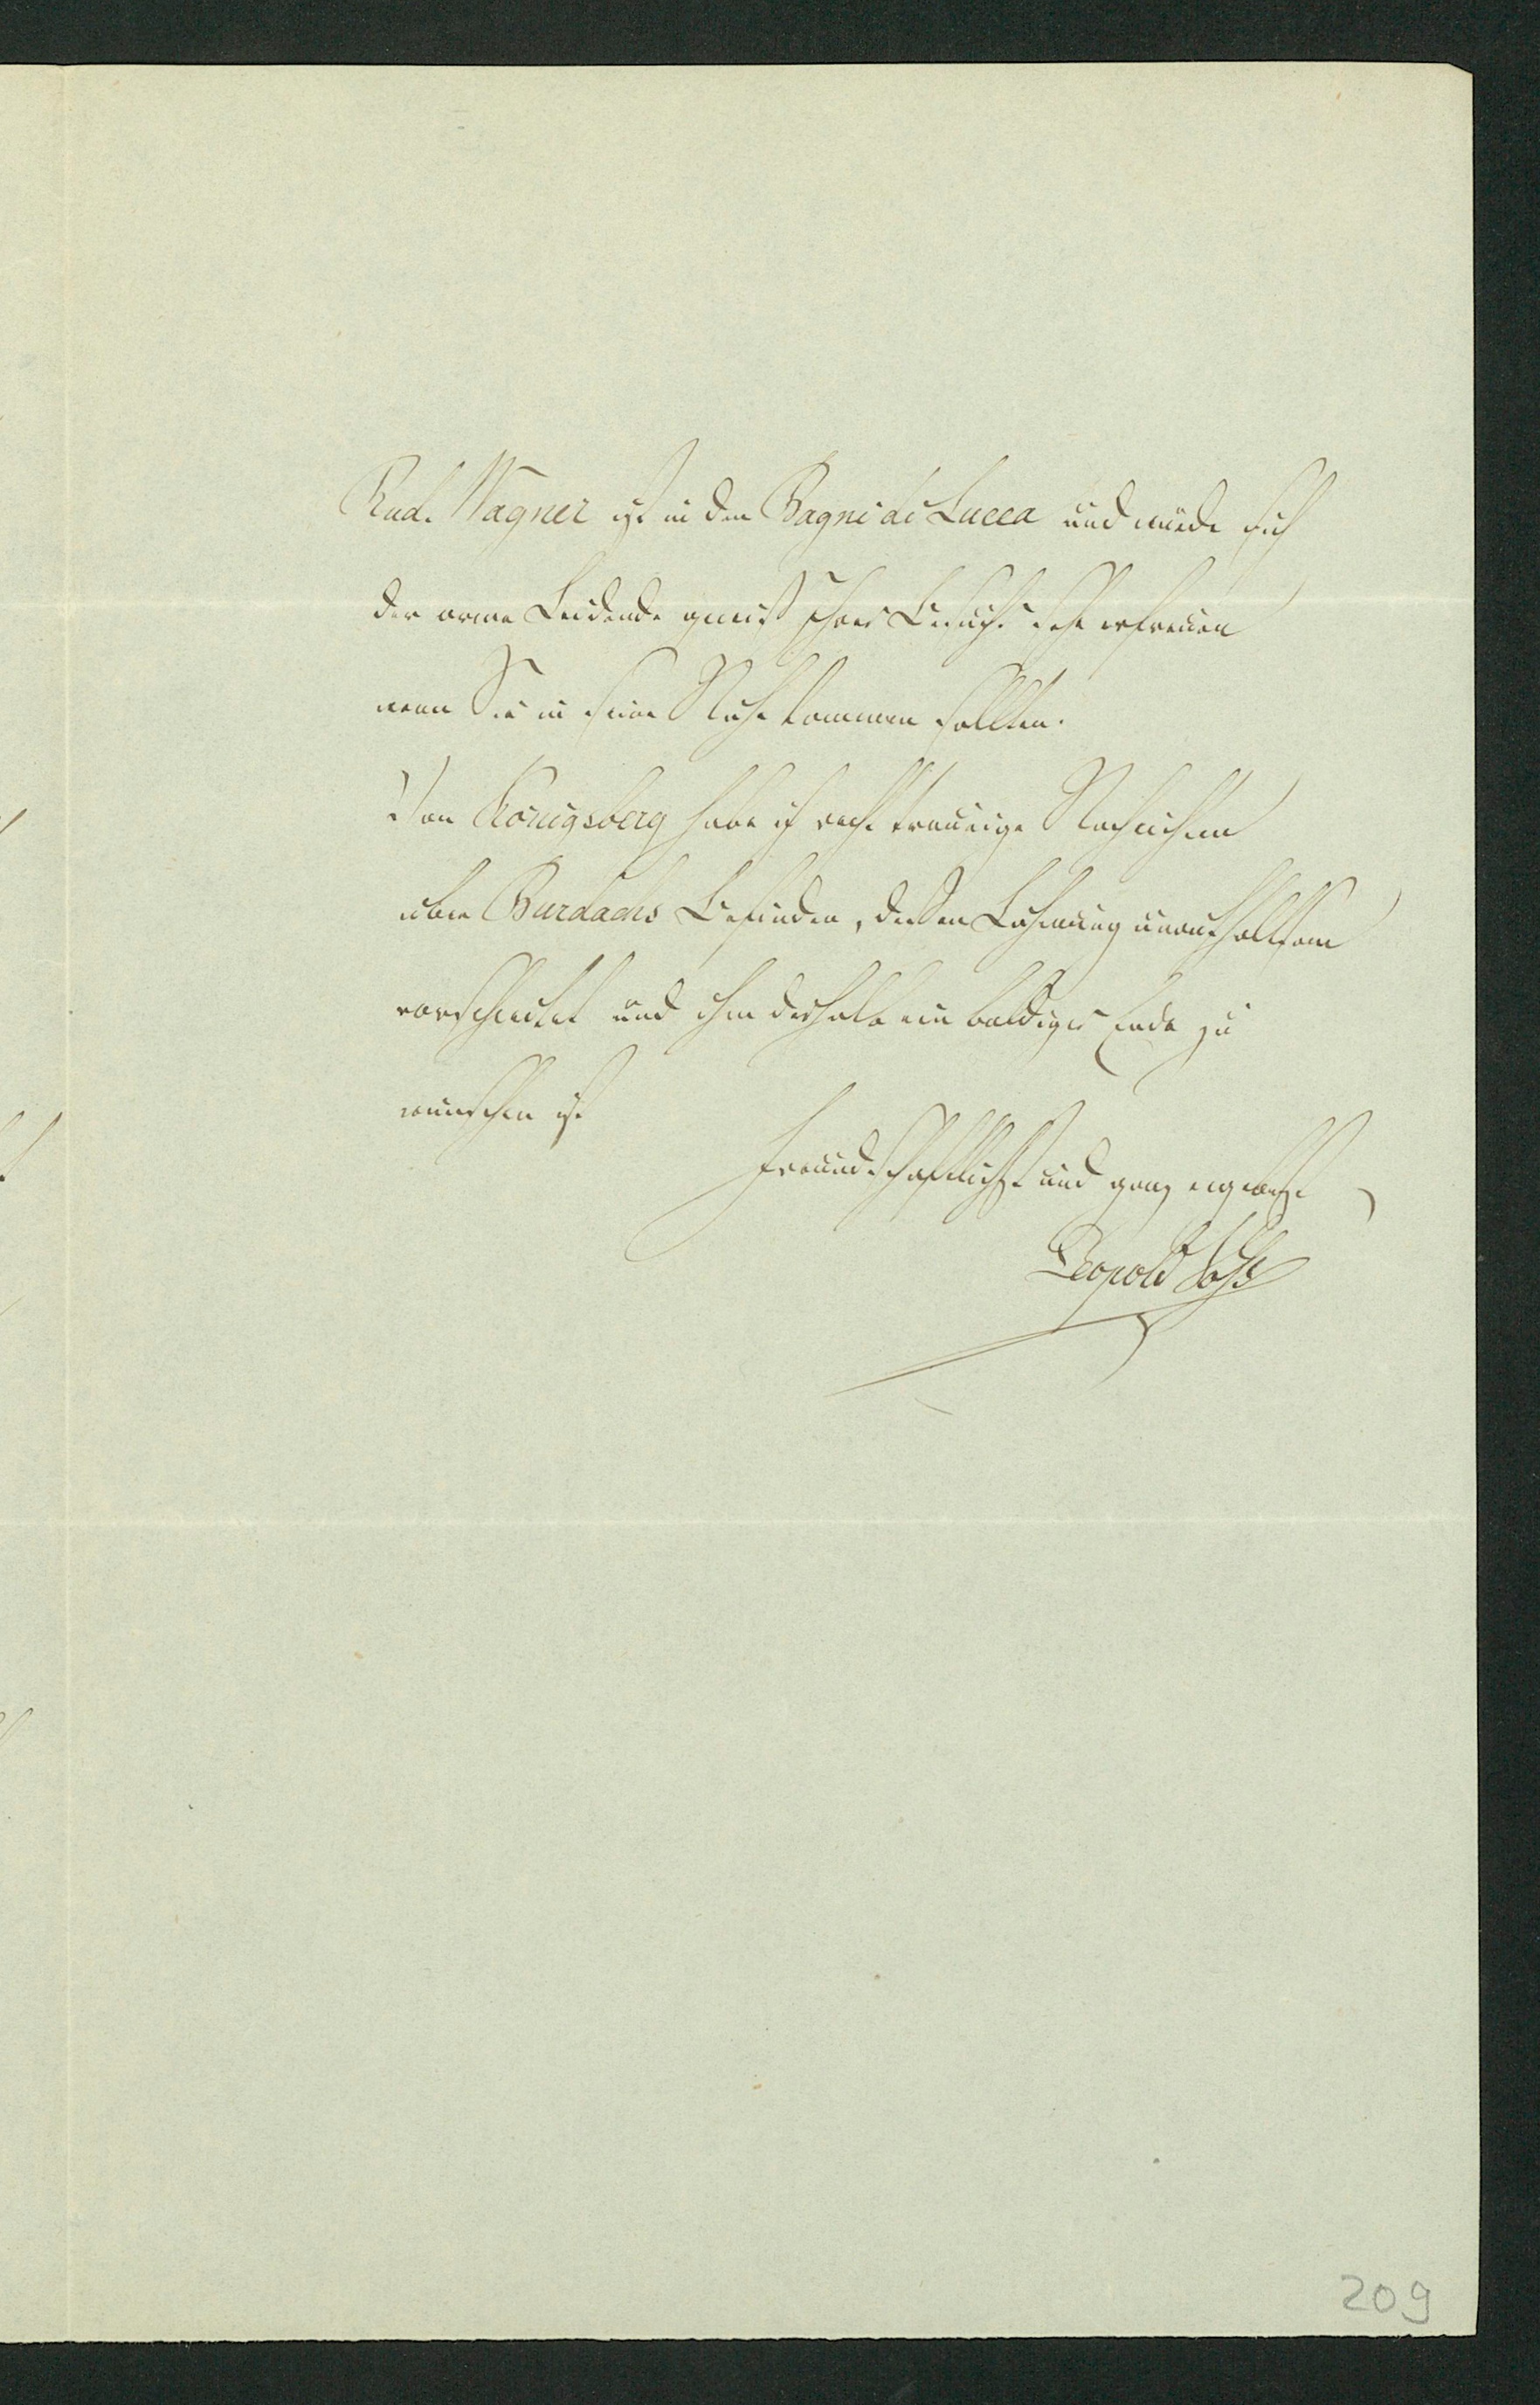 Rud. Wagner ist in den Bagni di Lucca und würde sich
der arme Leidende gewiß Ihres Besuchs sehr erfreuen
wenn Sie in seine Nähe kommen sollten.
Von Königsberg habe ich recht traurige Nachrichten
über Burdachs Befinden, dessen Lähmung unaufhaltsam
vorschreitet und ihm deshalb ein baldiges Ende zu
wünschen ist
freundschaftlichst und ganz ergebenst
Leopold Voß
209